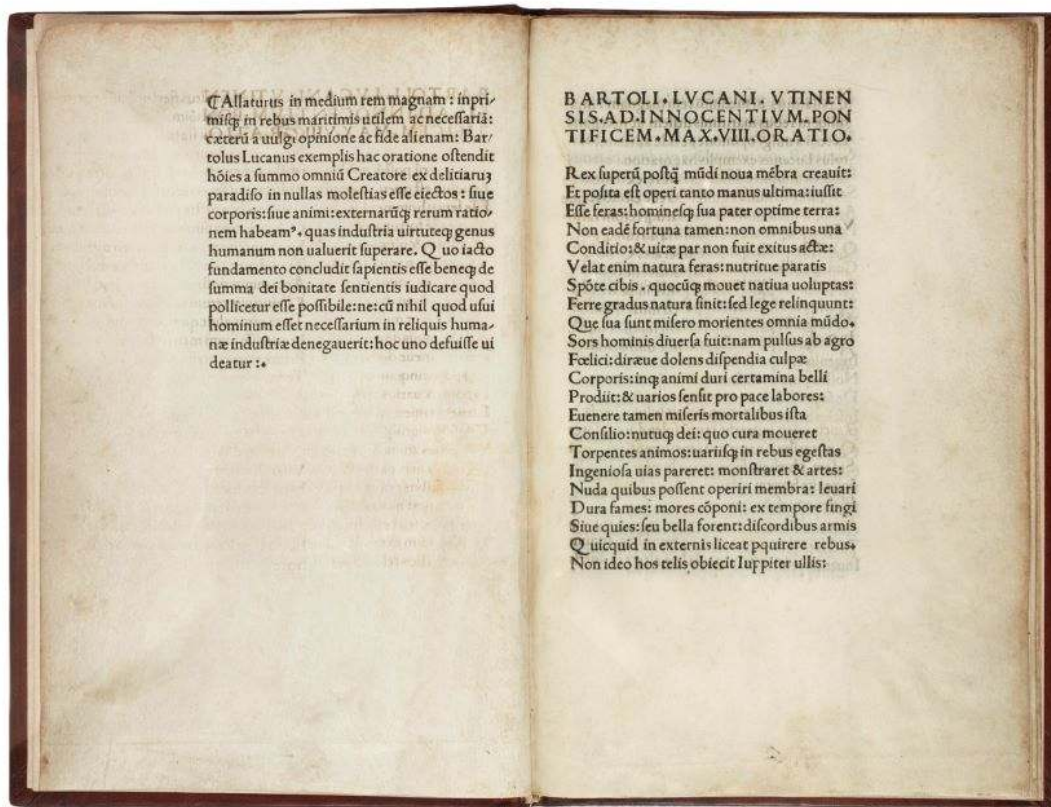 ⁋Allaturus in medium rem magnam : inpri-
miſq; in rebus maritimis utilem ac neceſſariā:
cæterū a uulgi opinione ac fide alienam: Bar-
tolus Lucanus exemplis hac oratione oſtendit
hōies a ſummo omniū Creatore ex delitiaruꝫ
paradiſo in nullas moleſtias eſſe eiectos : ſiue
corporis: ſiue animi: externarūq; rerum ratio-
nem habeamꝰ. quas induſtria uirtuteq; genus
humanum non ualuerit ſuperare. Quo iacto
fundamento concludit ſapientis eſſe beneq; de
ſumma dei bonitate ſentientis iudicare quod
pollicetur eſſe poſſibile: ne: cū nihil quod uſui
hominum eſſet neceſſarium in reliquis huma-
næ induſtriæ denegauerit: hoc uno defuiſſe ui
deatur :.
BARTOLI. LVCANI. VTINEN
SIS. AD. INNOCENTIVM. PON
TIFICEM. MAX. VIII. ORATIO.
Rex ſuperū poſtq̄ mūdi noua mēbra creauit:
Et poſita eſt operi tanto manus ultima: iuſſit
Eſſe feras: homineſq; ſua pater optime terra:
Non eadē fortuna tamen: non omnibus una
Conditio: & uitæ par non fuit exitus actæ:
Velat enim natura feras: nutritue paratis
Spōte cibis . quocūq; mouet natiua uoluptas:
Ferre gradus natura ſinit: ſed lege relinquunt:
Que ſua ſunt miſero morientes omnia mūdo.
Sors hominis diuerſa fuit: nam pulſus ab agro
Fœlici: diræue dolens diſpendia culpæ
Corporis: inq; animi duri certamina belli
Prodiit: & uarios ſenſit pro pace labores:
Euenere tamen miſeris mortalibus iſta
Conſilio: nutuq; dei: quo cura moueret
Torpentes animos: uariiſq; in rebus egeſtas
Ingenioſa uias pareret: monſtraret & artes:
Nuda quibus poſſent operiri membra: leuari
Dura fames: mores cōponi: ex tempore fingi
Siue quies: ſeu bella forent: diſcordibus armis
Quicquid in externis liceat ꝑquirere rebus.
Non ideo hos telis obiecit Iuppiter ullis: